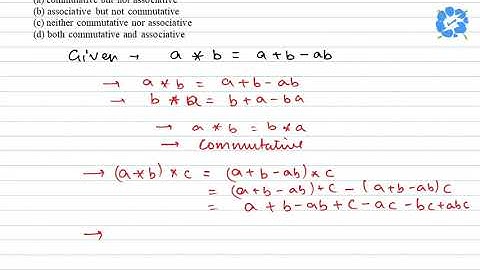 (a) commutative but not associative
(b) associative but not commutative
(c) neither commutative nor associative
(d) both commutative and associative
Given → a * b = a+b-ab
→ a * b = a+b-ab
→ b * a = b+a-ba
→ a * b = b*a
→ commutative
→ (a*b) * c = (a+b-ab)*c
= (a+b-ab)+c-(a+b-ab)c
= a+b-ab+c-ac-bc+abc
→